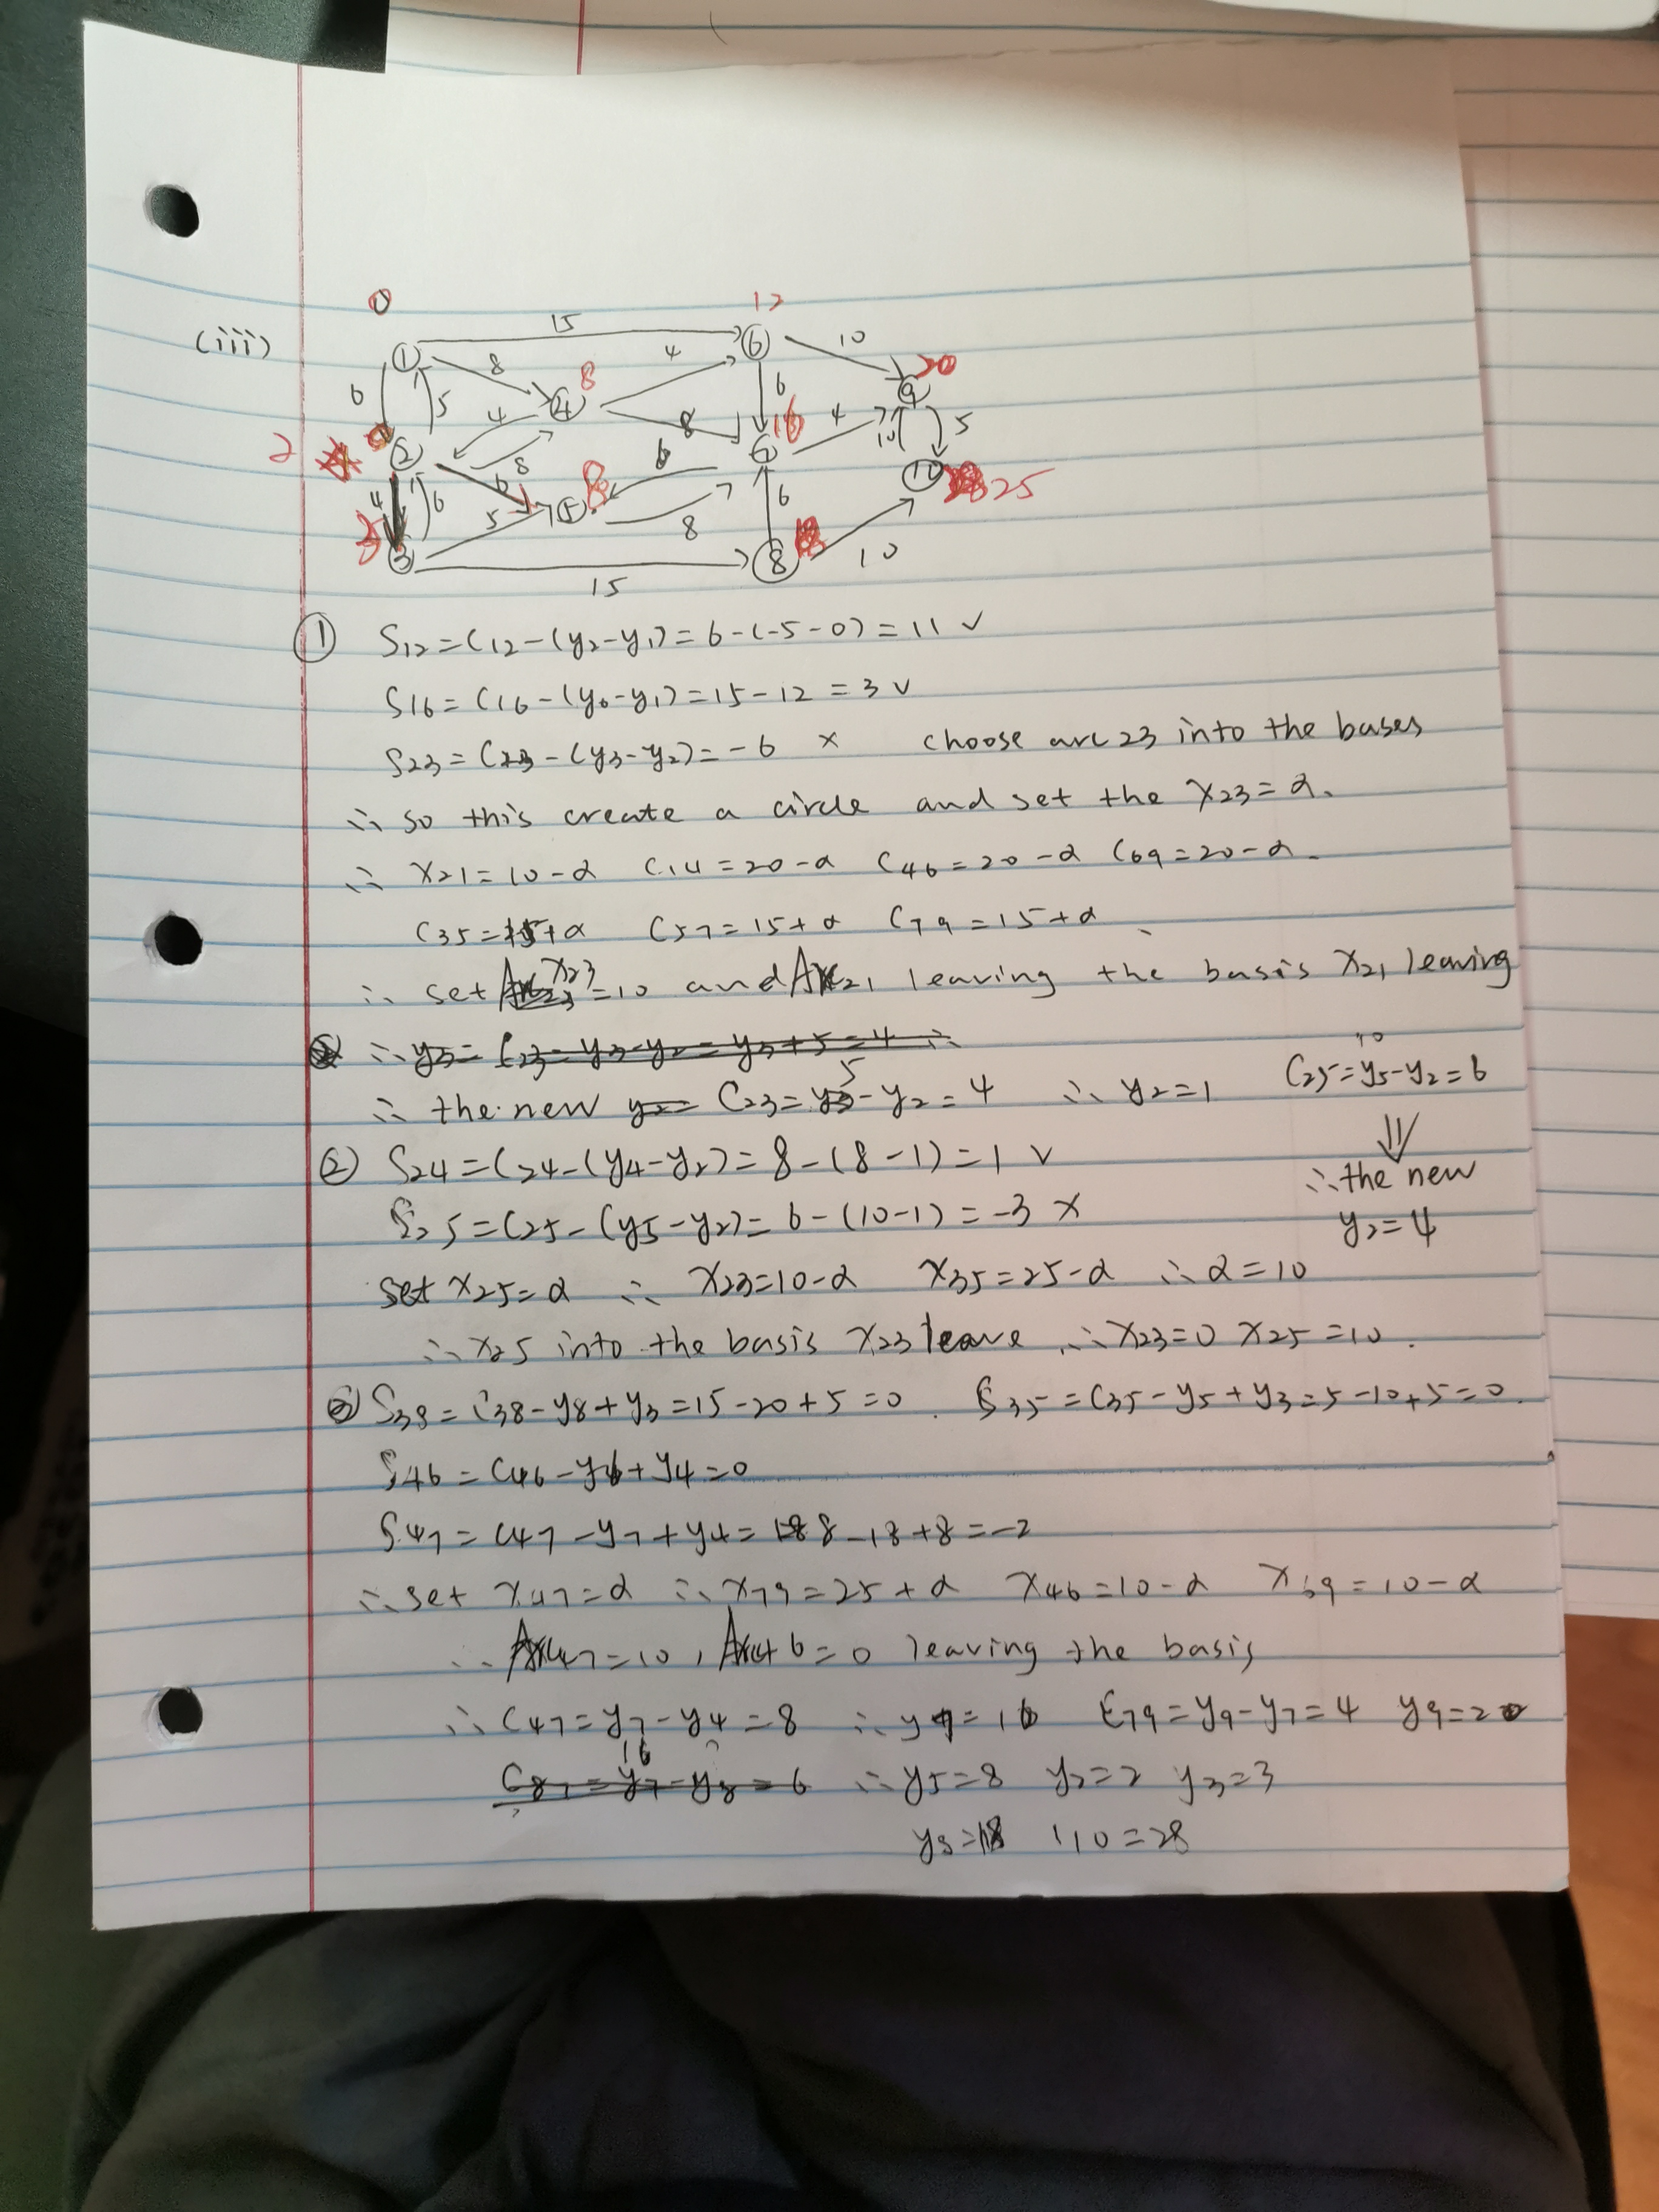 (iii)
0 12
15
① ⑥ 10
8 4 20
6 5 8 ④ 6 ⑨
4 8 16 4 5
2 ② 8 6 10
6 8 ⑩ 25
4 6 5 ⑤ 6
3 8
③ ⑧ 10
15
① S12 = C12 - (y2 - y1) = 6 - (-5 - 0) = 11 √
S16 = C16 - (y6 - y1) = 15 - 12 = 3 √
S23 = C23 - (y3 - y2) = -6 × choose arc 23 into the bases
∴ so this create a circle and set the x23 = α.
∴ x21 = 10 - α C14 = 20 - α C46 = 20 - α C69 = 20 - α
C35 = 15 + α C57 = 15 + α C79 = 15 + α
∴ set x23 = 10 and x21 leaving the basis x21 leaving
∴ y3 = C23 - y3 - y2 = y3 + 5 = 4 ∴
∴ the new y2 = C23 = y3 - y2 = 4 ∴ y2 = 1 C25 = y5 - y2 = 6
5 10
② S24 = C24 - (y4 - y2) = 8 - (8 - 1) = 1 √ ⇓
∴ the new
S25 = C25 - (y5 - y2) = 6 - (10 - 1) = -3 × y2 = 4
set x25 = α ∴ x23 = 10 - α x35 = 25 - α ∴ α = 10
∴ x25 into the basis x23 leave ∴ x23 = 0 x25 = 10.
③ S38 = C38 - y8 + y3 = 15 - 20 + 5 = 0. S35 = C35 - y5 + y3 = 5 - 10 + 5 = 0.
S46 = C46 - y6 + y4 = 0
S47 = C47 - y7 + y4 = 8 - 18 + 8 = -2
∴ set x47 = α ∴ x79 = 25 + α x46 = 10 - α x69 = 10 - α
∴ x47 = 10, x46 = 0 leaving the basis
∴ C47 = y7 - y4 = 8 ∴ y7 = 16 C79 = y9 - y7 = 4 y9 = 20
C87 = y7 - y8 = 6 ∴ y5 = 8 y2 = 2 y3 = 3
16
y8 = 18 y10 = 28